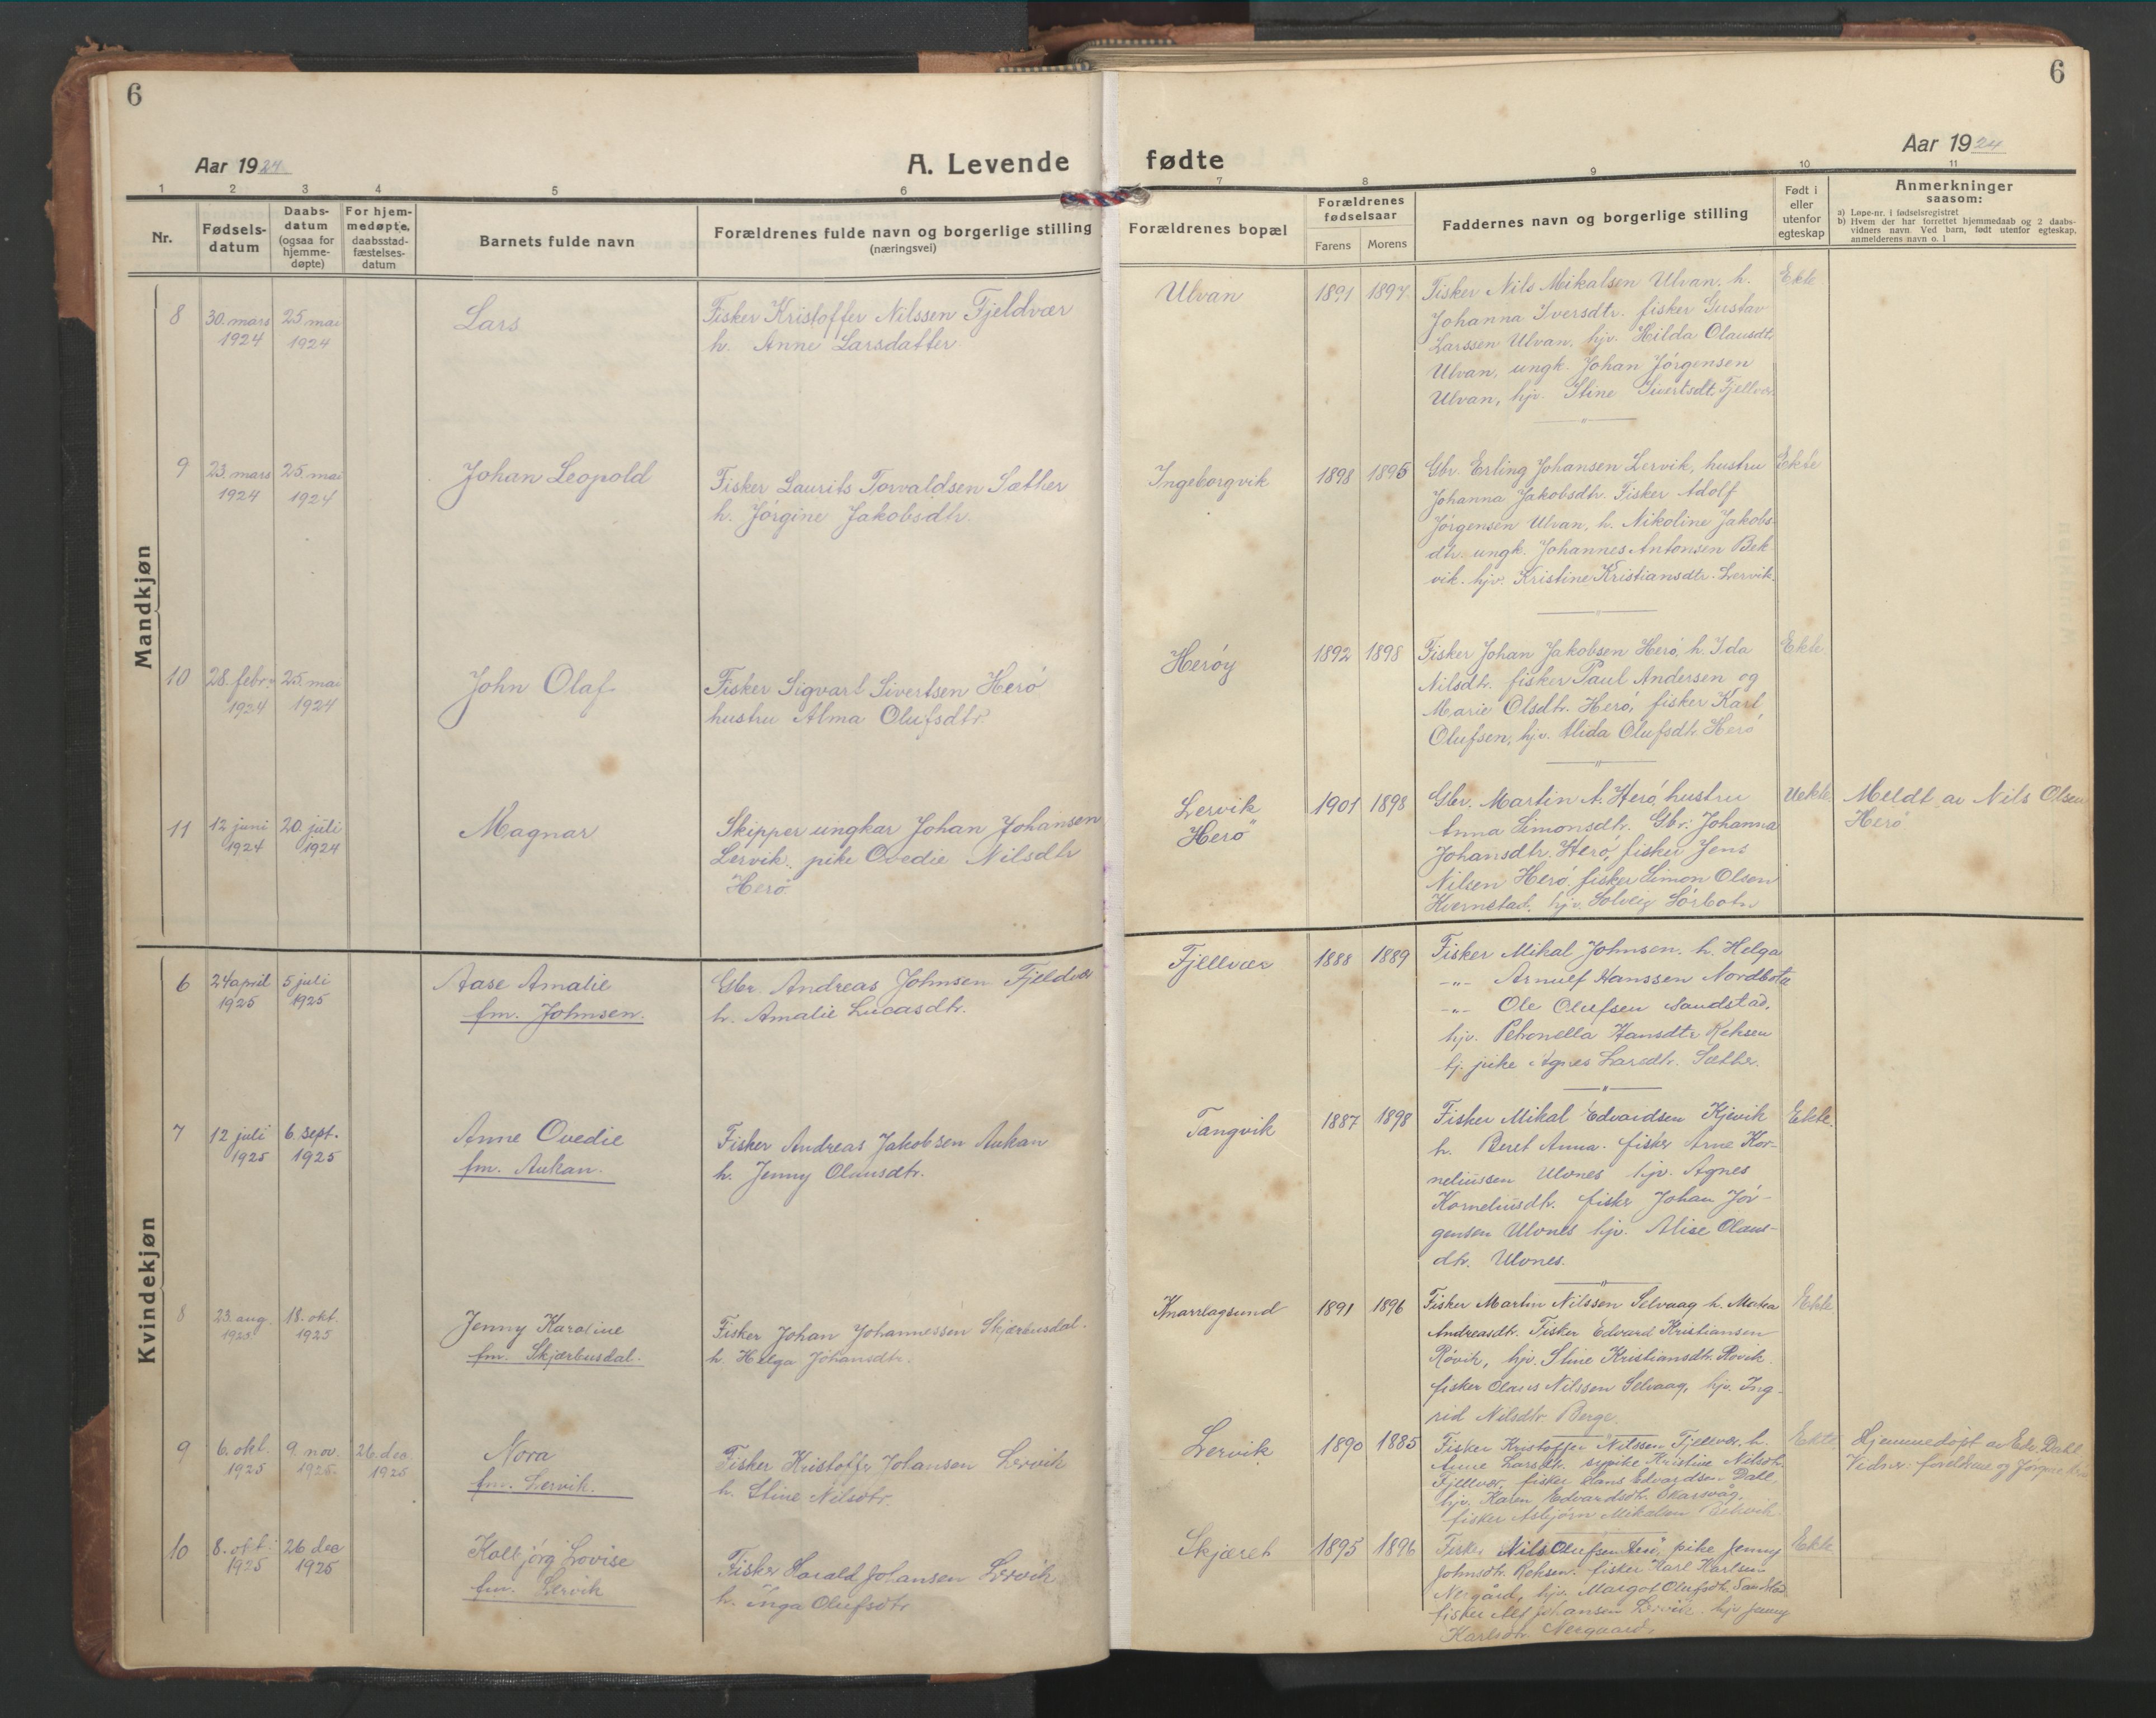 6
Aar 1924
A. Levende
1 2 3 4 5 6
Nr.
Fødsels-
datum
Daabs-
datum
(ogsaa for
hjemme-
døpte)
For hjem-
medøpte,
daabsstad-
fæstelses-
datum
Barnets fulde navn
Forældrenes fulde navn og borgerlige stilling
(næringsvei)
Mandkjøn
8
30. mars
1924
25 mai
1924
Lars
Fisker Kristoffer Nilssen Fjeldvær
h. Anne Larsdatter
9
23. mars
1924
25. mai
1924
Johan Leopold
Fisker Laurits Torvaldsen Sæther
h. Jørgine Jakobsdtr.
10
28. febr.
1924
25. mai
1924
John Olaf
Fisker Sigvart Sivertsen Herø
hustru Alma Olufsdtr.
11
12 juni
1924
20. juli
1924
Magnar
Skipper ungkar Johan Johansen
Lervik, pike Ovedie Nilsdtr
Herø
Kvindekjøn
6
24 april
1925
5 juli
1925
Aase Amalie
fm. Johnsen.
Gbr. Andreas Johnsen Fjeldvær
h. Amalie Lucasdtr.
7
12 juli
1925
6. sept.
1925
Anne Ovedie
fm. Aukan.
Fisker Andreas Jakobsen Aukan
h. Jenny Olausdtr.
8
23. aug.
1925
18. okt.
1925
Jenny Karoline
fm. Skjærbusdal.
Fisker Johan Johannessen Skjærbusdal.
h. Helga Johansdtr.
9
6. okt.
1925
9. nov.
1925.
26. dec
1925
Nora
fm. Lervik.
Fisker Kristoffer Johansen Lervik
h. Stine Nilsdtr.
10
8. okt.
1925
26 dec
1925
Kolbjørg Lovise
fm. Lervik
Fisker Harald Johansen Lervik
h. Inga Olufsdtr
6
Aar 1924
fødte
7 8 9 10 11
Forældrenes bopæl
Forældrenes
fødselsaar
Farens Morens
Faddernes navn og borgerlige stilling
Født i
eller
utenfor
egteskap
Anmerkninger
saasom:
a) Løpe-nr. i fødselsregistret
b) Hvem der har forrettet hjemmedaab og 2 daabs-
vidners navn. Ved barn, født utenfor egteskap,
anmelderens navn o. l
Ulvan
1891 1897
Fisker Nils Mikalsen Ulvan, h.
Johanna Iversdtr. fisker Gustav
Larssen Ulvan, hjv. Hilda Olausdt.
Ulvan, ungk. Johan Jørgensen
Ulvan, hjv. Stine Sivertsdt. Fjellvær
Ekte
Ingeborgvik
1898 1895
Gbr. Erling Johansen Lervik, hustru
Johanna Jakobsdtr. Fisker Adolf
Jørgensen Ulvan, h. Nikoline Jakobs-
dtr. ungk. Johannes Antonsen Bek-
vik. hjv. Kristine Kristiansdtr. Lervik.
Ekte
Herøy
1892 1898
Fisker Johan Jakobsen Herø, h. Ida
Nilsdtr. fisker Paul Andersen og
Marie Olsdtr. Herø, fisker Karl
Olufsen, hjv. Alida Olufsdtr. Herø
Ekte.
Lervik
Herø
1901 1898
Gbr. Martin A. Herø, hustru
Anna Simonsdtr. Gbr. Johanna
Johansdtr. Herø, fisker Jens
Nilsen Herø, fisker Simon Olsen
Kvernstad. hjv. Solveig Sørbotn
Uekte.
Meldt av Nils Olsen
Herø
Fjellvær
1888 1889
Fisker Mikal Johnsen. h. Helga
-"- Arnulf Hanssen Nordbotn
-"- Ole Olufsen Sandstad,
hjv. Petronella Hansdtr Reksen
tj. pike Agnes Larsdtr. Sætter.
Tangvik
1887 1898
Fisker Mikal Edvardsen Kjevik
h. Beret Anna. fisker Arne Kor-
neliussen Ulvnes hjv. Agnes
Korneliusdtr. fisker Johan Jør-
gensen Ulvnes hjv. Alise Olaus-
dtr. Ulvnes.
Ekte.
Knarrlagsund
1891 1896
Fisker Martin Nilssen Selvaag h. Matea
Andreasdtr. Fisker Edvard Kristiansen
Røvik, hjv. Stine Kristiansdtr. Røvik.
fisker Olaus Nilssen Selvaag, hjv. Ing-
rid Nilsdtr. Berge.
Ekte
Lervik
1890 1885
Fisker Kristoffer Nilssen Fjellvær, h.
Anne Larsdtr. sypike Kristine Nilsdtr.
Fjellvær, fisker Hans Edvardsen Dahl,
hjv. Karen Edvardsdtr. Skarsvåg,
fisker Asbjørn Mikalsen Bekvik.
Ekte
Hjemmedøpt av Edv. Dahl
Vidner: foreldrene og Jørgine
Skjæret
1895 1896
Fisker Nils Olufsen Herø, pike Jenny
Johnsdtr. Reksen. fisker Karl Karlsen
Nergård, hjv. Margot Olufsdtr. Sandstad
fisker Alf Johansen Lervik. hjv Jenny
Karlsdtr. Nergaard.
Ekte